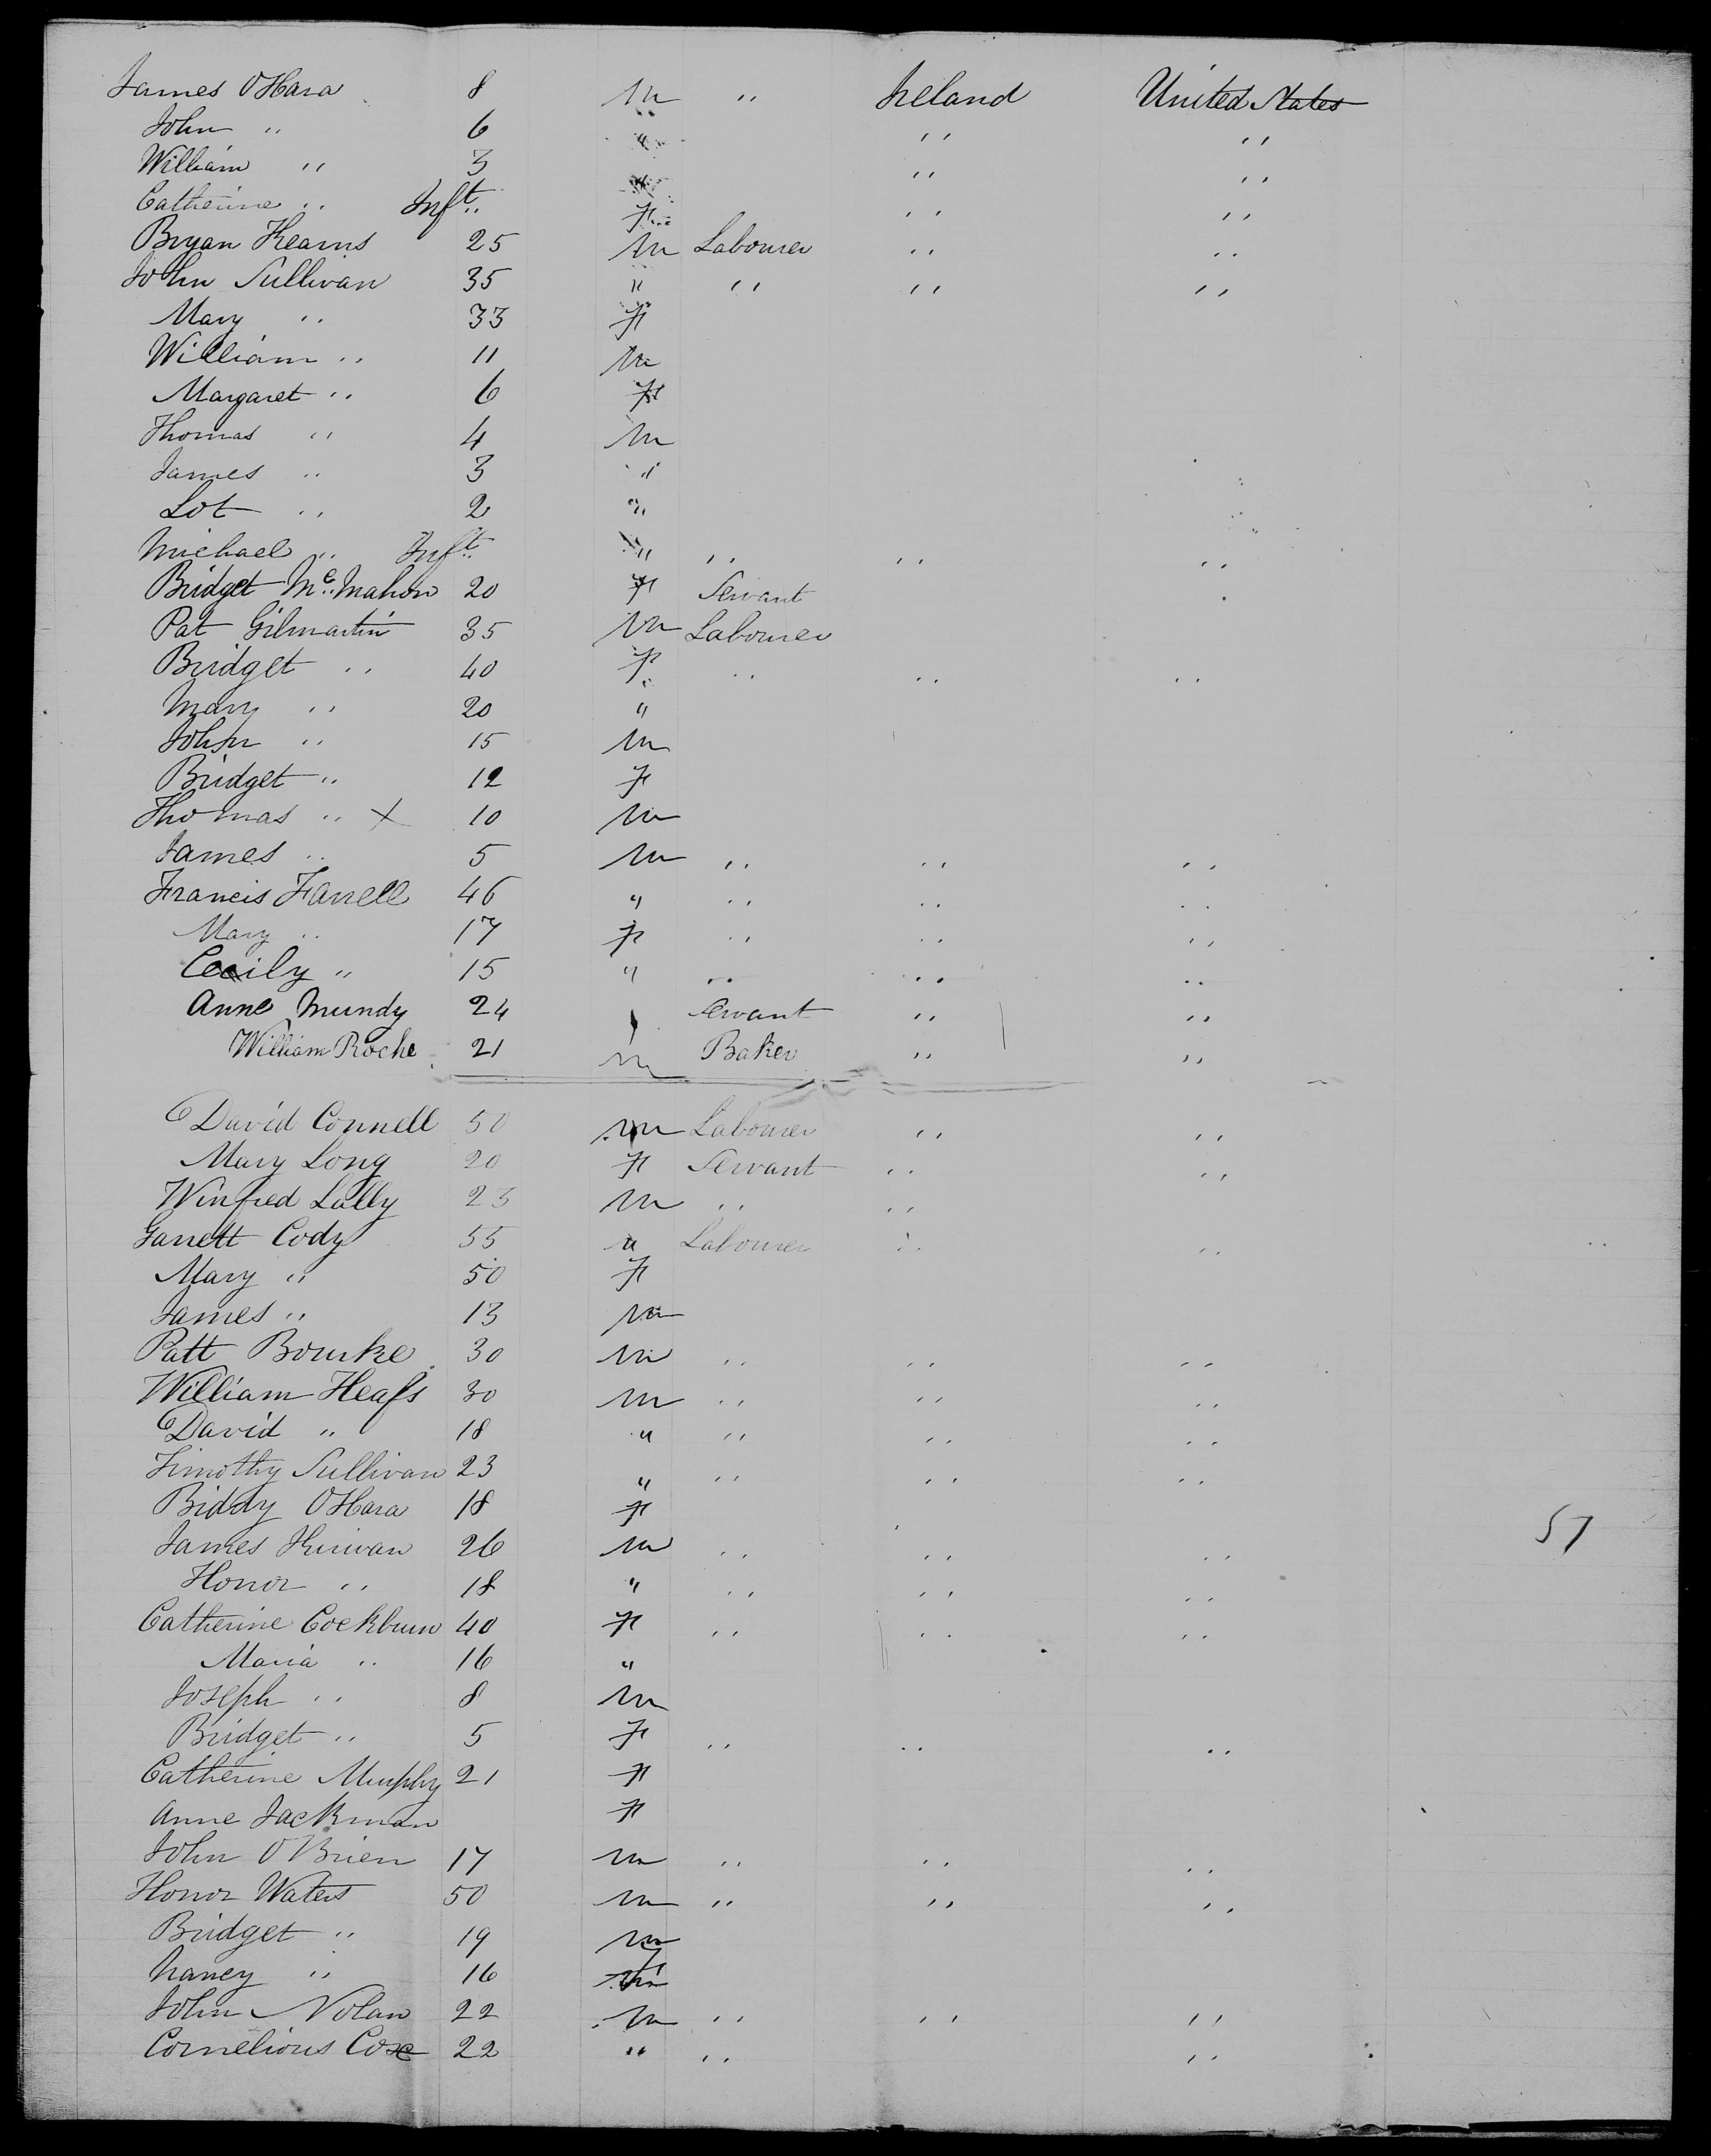 James OHara 8 m " Ireland United States
John " 6 " " "
William " 3 " " "
Catherine " Inft. F " "
Bryan Kearns 25 m Labourer " "
John Sullivan 35 " " " "
Mary " 33 F
William " 11 m
Margaret " 6 F
Thomas " 4 m
James " 3 "
Lot " 2 "
Michael " Inft. " " " "
Bridget Mc.Mahon 20 F Servant
Pat Gilmartin 35 m Labourer
Bridget " 40 F " " "
Mary " 20 "
John " 15 m
Bridget " 12 F
Thomas " X 10 m
James " 5 m " " "
Francis Farrell 46 " " " "
Mary " 17 F " " "
Cecily " 15 " " " "
Anne Mundy 24 Servant " "
William Roche 21 m Baker " "
David Connell 50 m Labourer " "
Mary Long 20 F Servant " "
Winfred Lally 23 m " "
Garrett Cody 55 " Labourer " "
Mary " 50 F
James " 13 m
Patt Bourke 30 m " " "
William Heafs 30 m " " "
David " 18 " " " "
Timothy Sullivan 23 " " " "
Biddy OHara 18 F
57
James Kirwan 26 m " " "
Honor " 18 " " " "
Catherine Cockburn 40 F " " "
Maria " 16 "
Joseph " 8 m
Bridget " 5 F " " "
Catherine Murphy 21 F
Anne Jackman F
John OBrien 17 m " " "
Honor Waters 50 m " " "
Bridget " 19 m
Nancy " 16 F
John Nolan 22 m " " "
Cornelious Cox 22 " " "